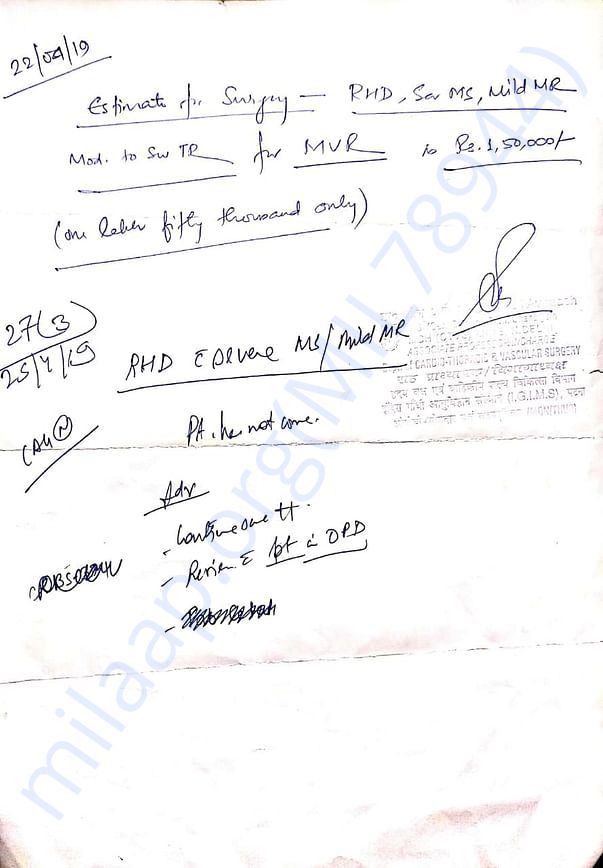 22/04/19
Estimate for Surgery — RHD, Sev MS, Mild MR
Mod. to Sev TR for MVR is Rs. 1,50,000/-
(one fifty thousand only)
27(3)
25/4/19
RHD c̄ severe MS/Mild MR
CAG (N)
Pt. has not come.
Adv
- Continue one tt.
- Review c̄ pt in OPD
ASSOCIATE
CARDIO-THORACIC & VASCULAR SURGERY
(I.G.I.M.S)
milaap.org(MIL789444)